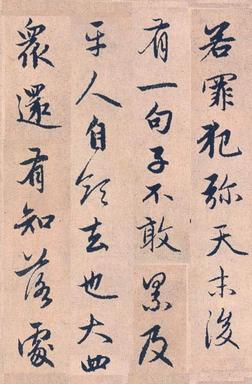 若罪犯弥天末後
有一句子不敢累及
平人自領去也大
眾還有知落處